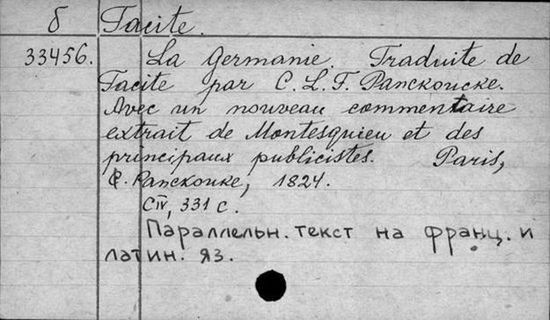 б Tacite.
33456. La Germanie. Traduite de
Tacite par C. L. F. Panckoucke.
Avec un nouveau commentaire
extrait de Montesquieu et des
principaux publicistes. Paris,
C. Panckouke, 1824.
CIV, 331 с.
Параллельн. текст на франц. и
латин. яз.